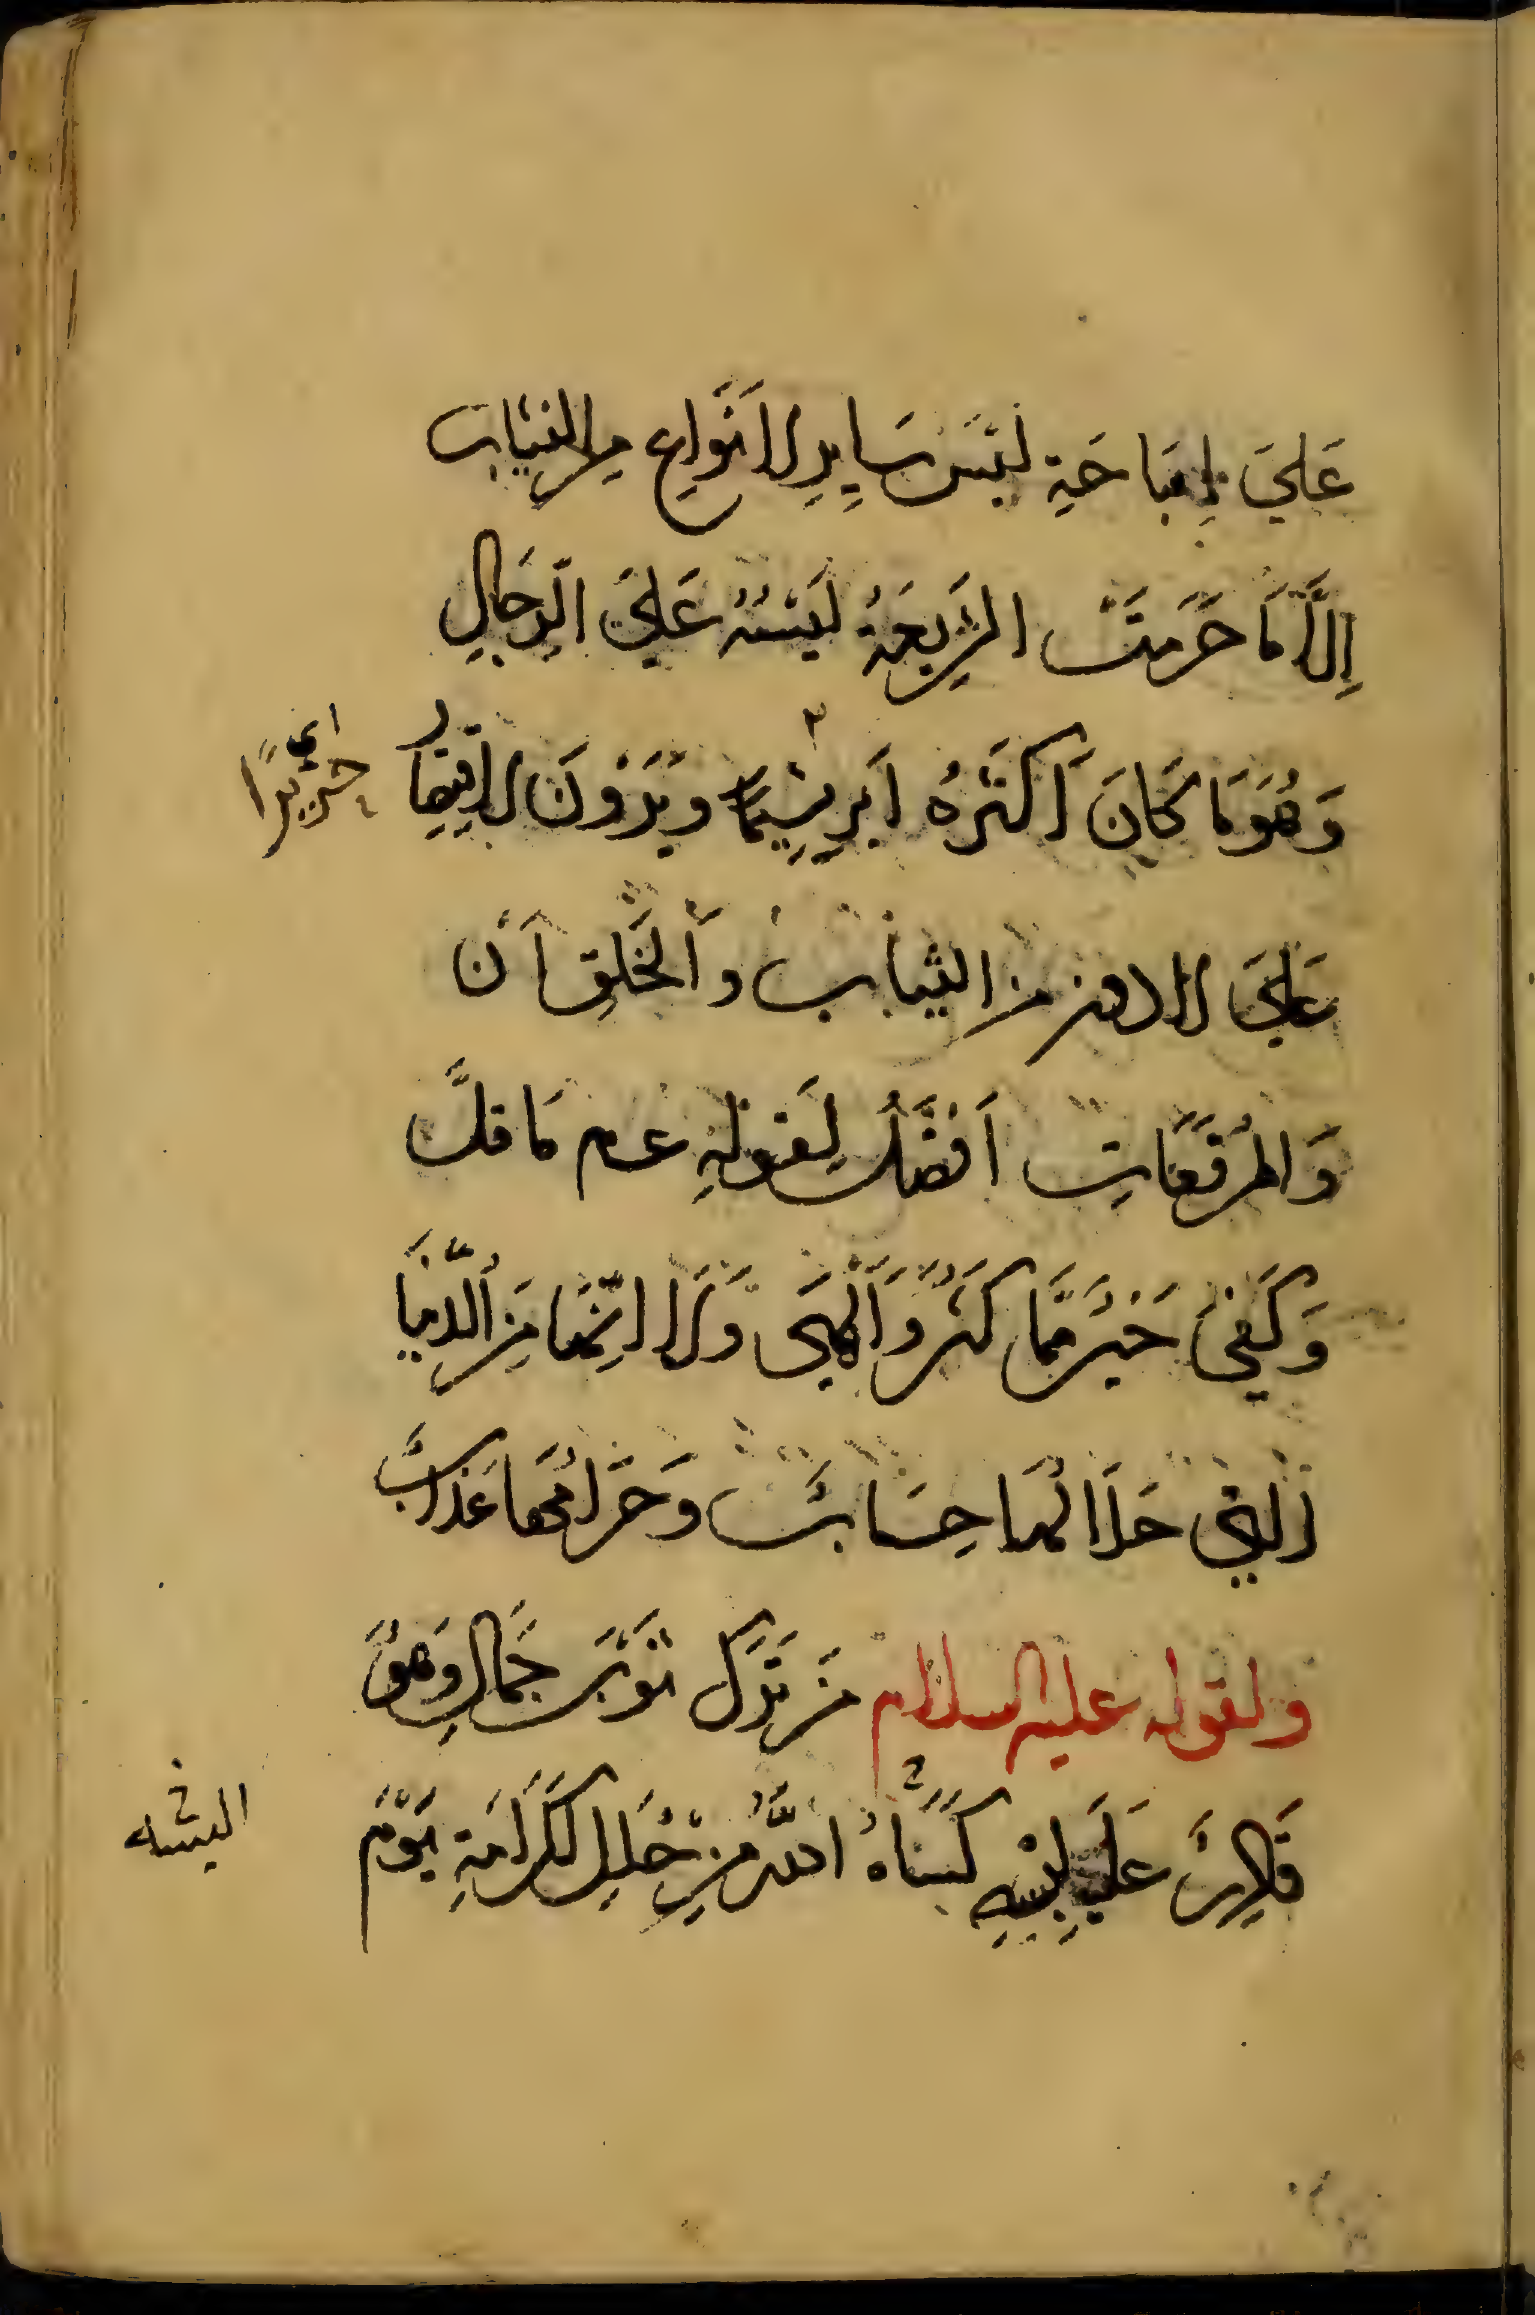 عَلَى إِبَاحَةِ لُبْسِ سَايِرِ الأَنْوَاعِ مِن الثيَابِ
إِلَّا مَا حَرَّمَتْ الشَّرِيعَةُ لُبْسَهُ عَلَى الرِّجَالِ
وَهُوَ مَا كَانَ أَكْثَرُهُ اَبْرِيسِمًا وَيَرَوْنَ الاقتِصَارَ
اي حَرِيرًا
عَلَى الادون مِن الثياب وَالْخَلِقَانِ
وَالْمُرَقَّعَاتِ أَفْضَلُ لِقَوْلِهِ عم مَا قَلَّ
وَكَفَى خَيْرٌ مِمَّا كَثُرَ وَأَلْهَى وَلِأَنَّهَا مِنَ الدُّنْيَا
الَّتِي حَلَالُهَا حِسَابٌ وَحَرَامُهَا عَذَابٌ
ولقوله عليه السلام مَنْ تَرَكَ ثَوْبَ جَمَالٍ وَهُوَ
قَادِرٌ عَلَى لُبْسِهِ كَسَاهُ اللَّهُ مِنْ حُلَلِ الْكَرَامَةِ يَوْمَ
البسه